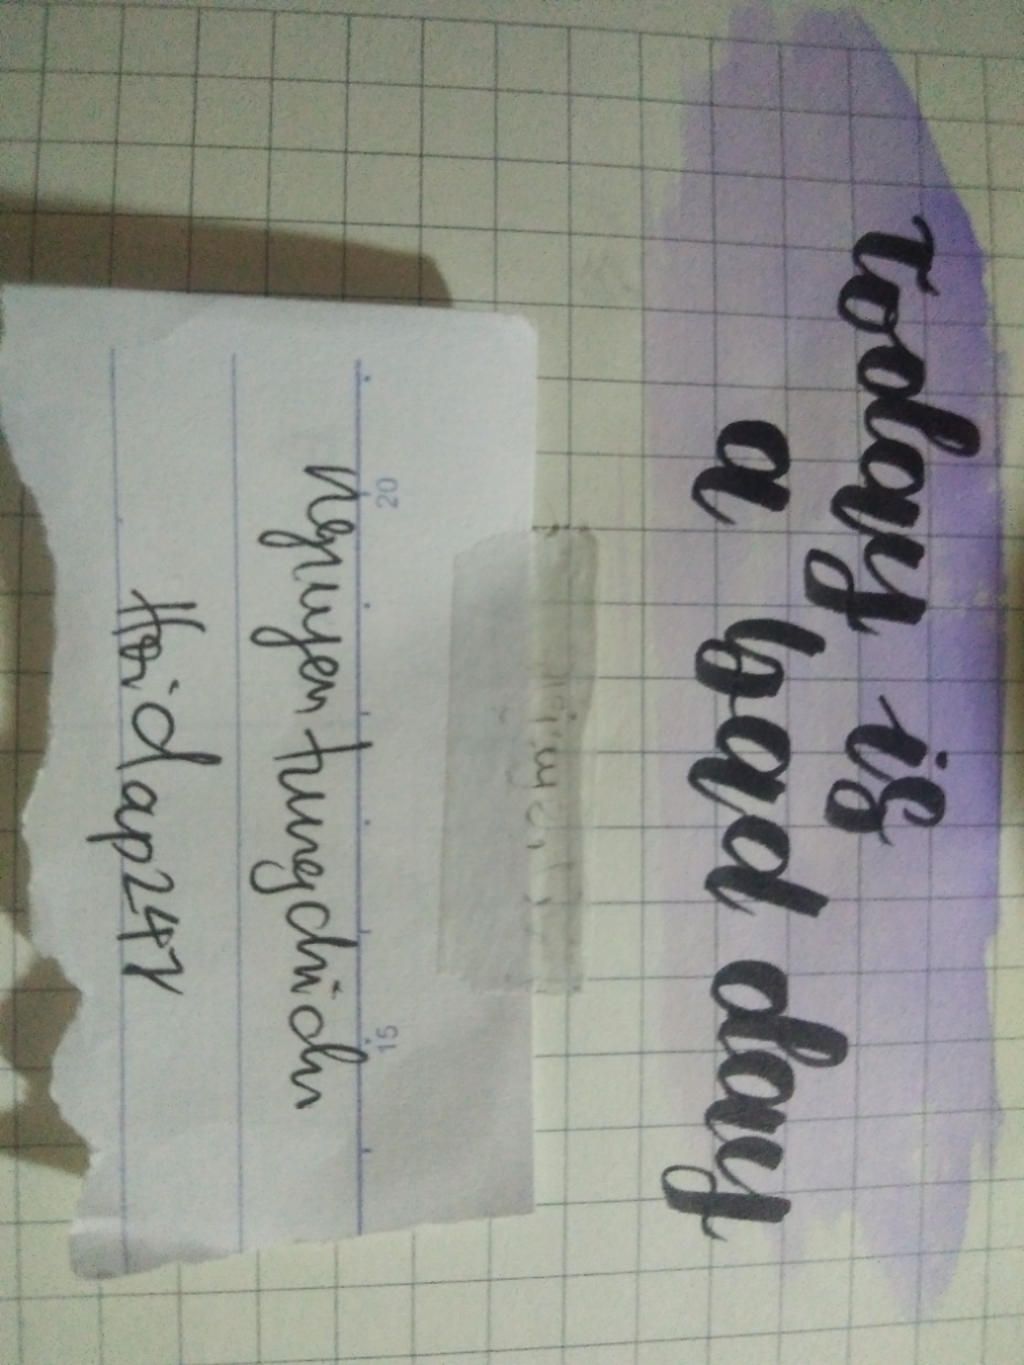 Today is
a bad day
20
15
nguyentungchichi
Hoidap247